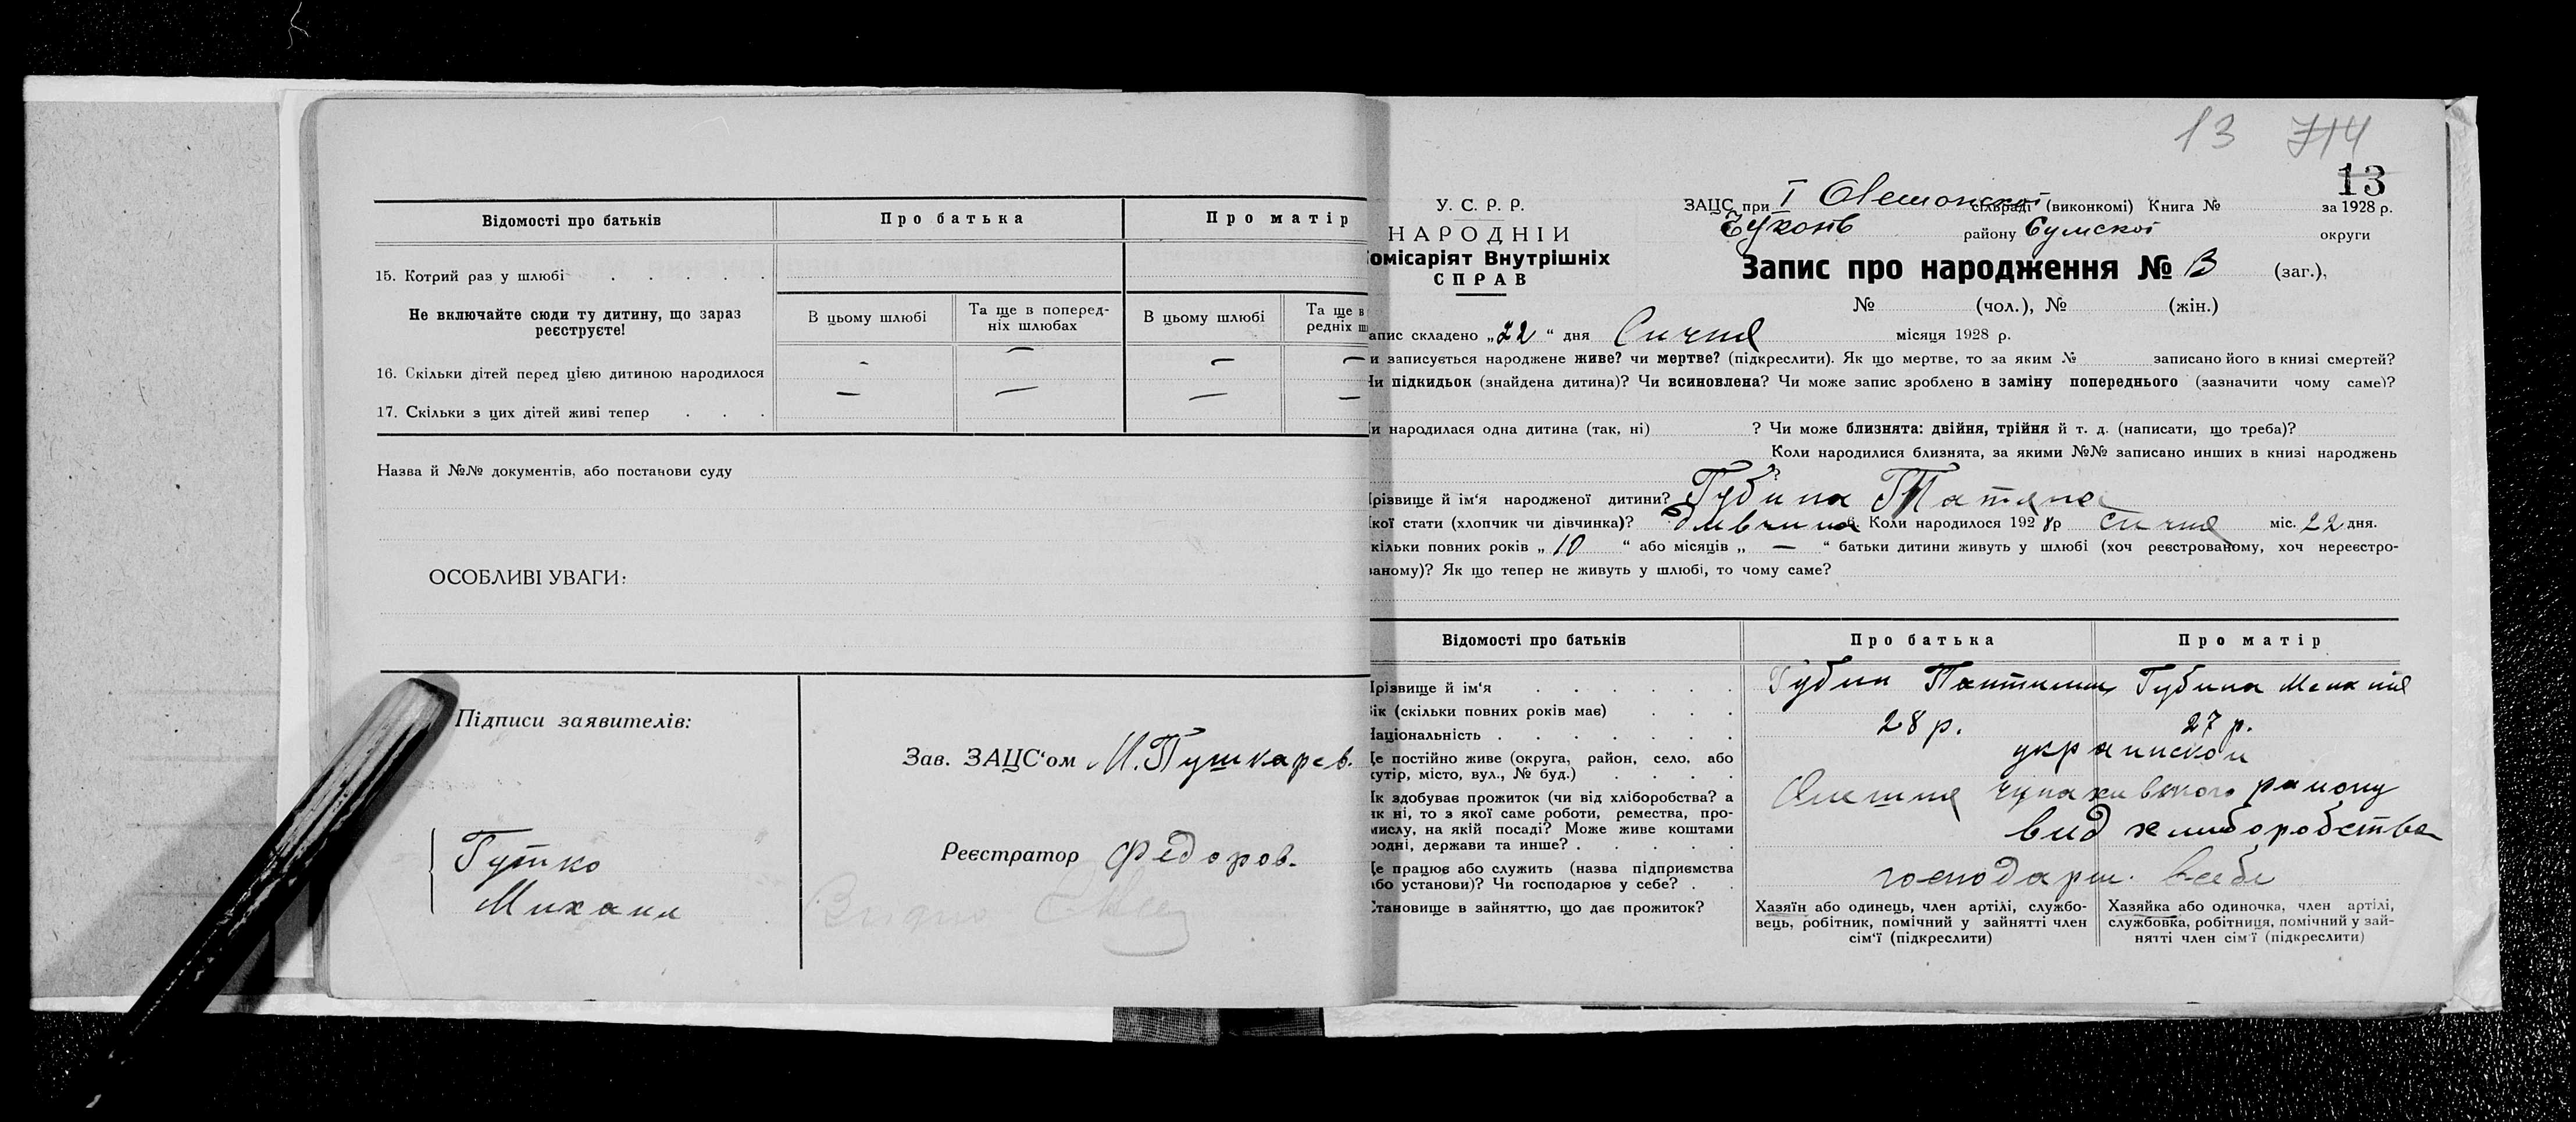 Відомості про батьків
Про батька
Про матір
15. Котрий раз у шлюбі
Не включайте сюди ту дитину, що зараз
реєструєте!
В цьому шлюбі
Та ще в поперед-
ніх шлюбах
В цьому шлюбі
Та ще в
редніх
16. Скільки дітей перед цією дитиною народилося
- — — —
17. Скільки з цих дітей живі тепер
— — — —
Назва й №№ документів, або постанови суду
ОСОБЛИВІ УВАГИ:
Підписи заявителів:
Гутко
Михаил
Зав. ЗАЦС‘ом М. Пушкарев.
Реєстратор Федоров.
13 714
13
У. С. Р. Р.
НАРОДНІЙ
омісаріят Внутрішніх
СПРАВ
ЗАЦС при І сільраді (виконкомі) Книга № за 1928 р.
району Сумскої округи
Запис про народження № 13 (заг.),
№ (чол.), № (жін.)
апис складено „22“ дня Сичня місяця 1928 р.
и записується народжене живе? чи мертве? (підкреслити). Як що мертве, то за яким № записано його в книзі смертей?
и підкидьок (знайдена дитина)? Чи всиновлена? Чи може запис зроблено в заміну попереднього (зазначити чому саме)?
и народилася одна дитина (так, ні) ? Чи може близнята: двійня, трійня й т. д. (написати, що треба)?
Коли народилися близнята, за якими №№ записано инших в книзі народжень
різвище й ім‘я народженої дитини? Губина Татяна
кої стати (хлопчик чи дівчинка)? дивчина 6. Коли народилося 1928 р сичня міс. 22 дня.
кільки повних років „ 10 “ або місяців „ — “ батьки дитини живуть у шлюбі (хоч реєстрованому, хоч нереєстро-
аному)? Як що тепер не живуть у шлюбі, то чому саме?
Відомості про батьків
Про батька
Про матір
різвище й ім‘я
Губин
Губина
ік (скільки повних років має)
28 р.
27 р.
аціональність
украинскои
е постійно живе (округа, район, село, або
утір, місто, вул., № буд.)
району
к здобуває прожиток (чи від хліборобства? а
як ні, то з якої саме роботи, ремества, про-
мислу, на якій посаді? Може живе коштами
родні, держави та инше?
вид хлиборобства
е працює або служить (назва підприємства
або установи)? Чи господарює у себе?
господарш. всебе
тановище в зайняттю, що дає прожиток?
Хазяїн або одинець, член артілі, службо-
вець, робітник, помічний у зайнятті член
сім‘ї (підкреслити)
Хазяйка або одиночка, член артілі,
службовка, робітниця, помічний у зай-
нятті член сім‘ї (підкреслити)